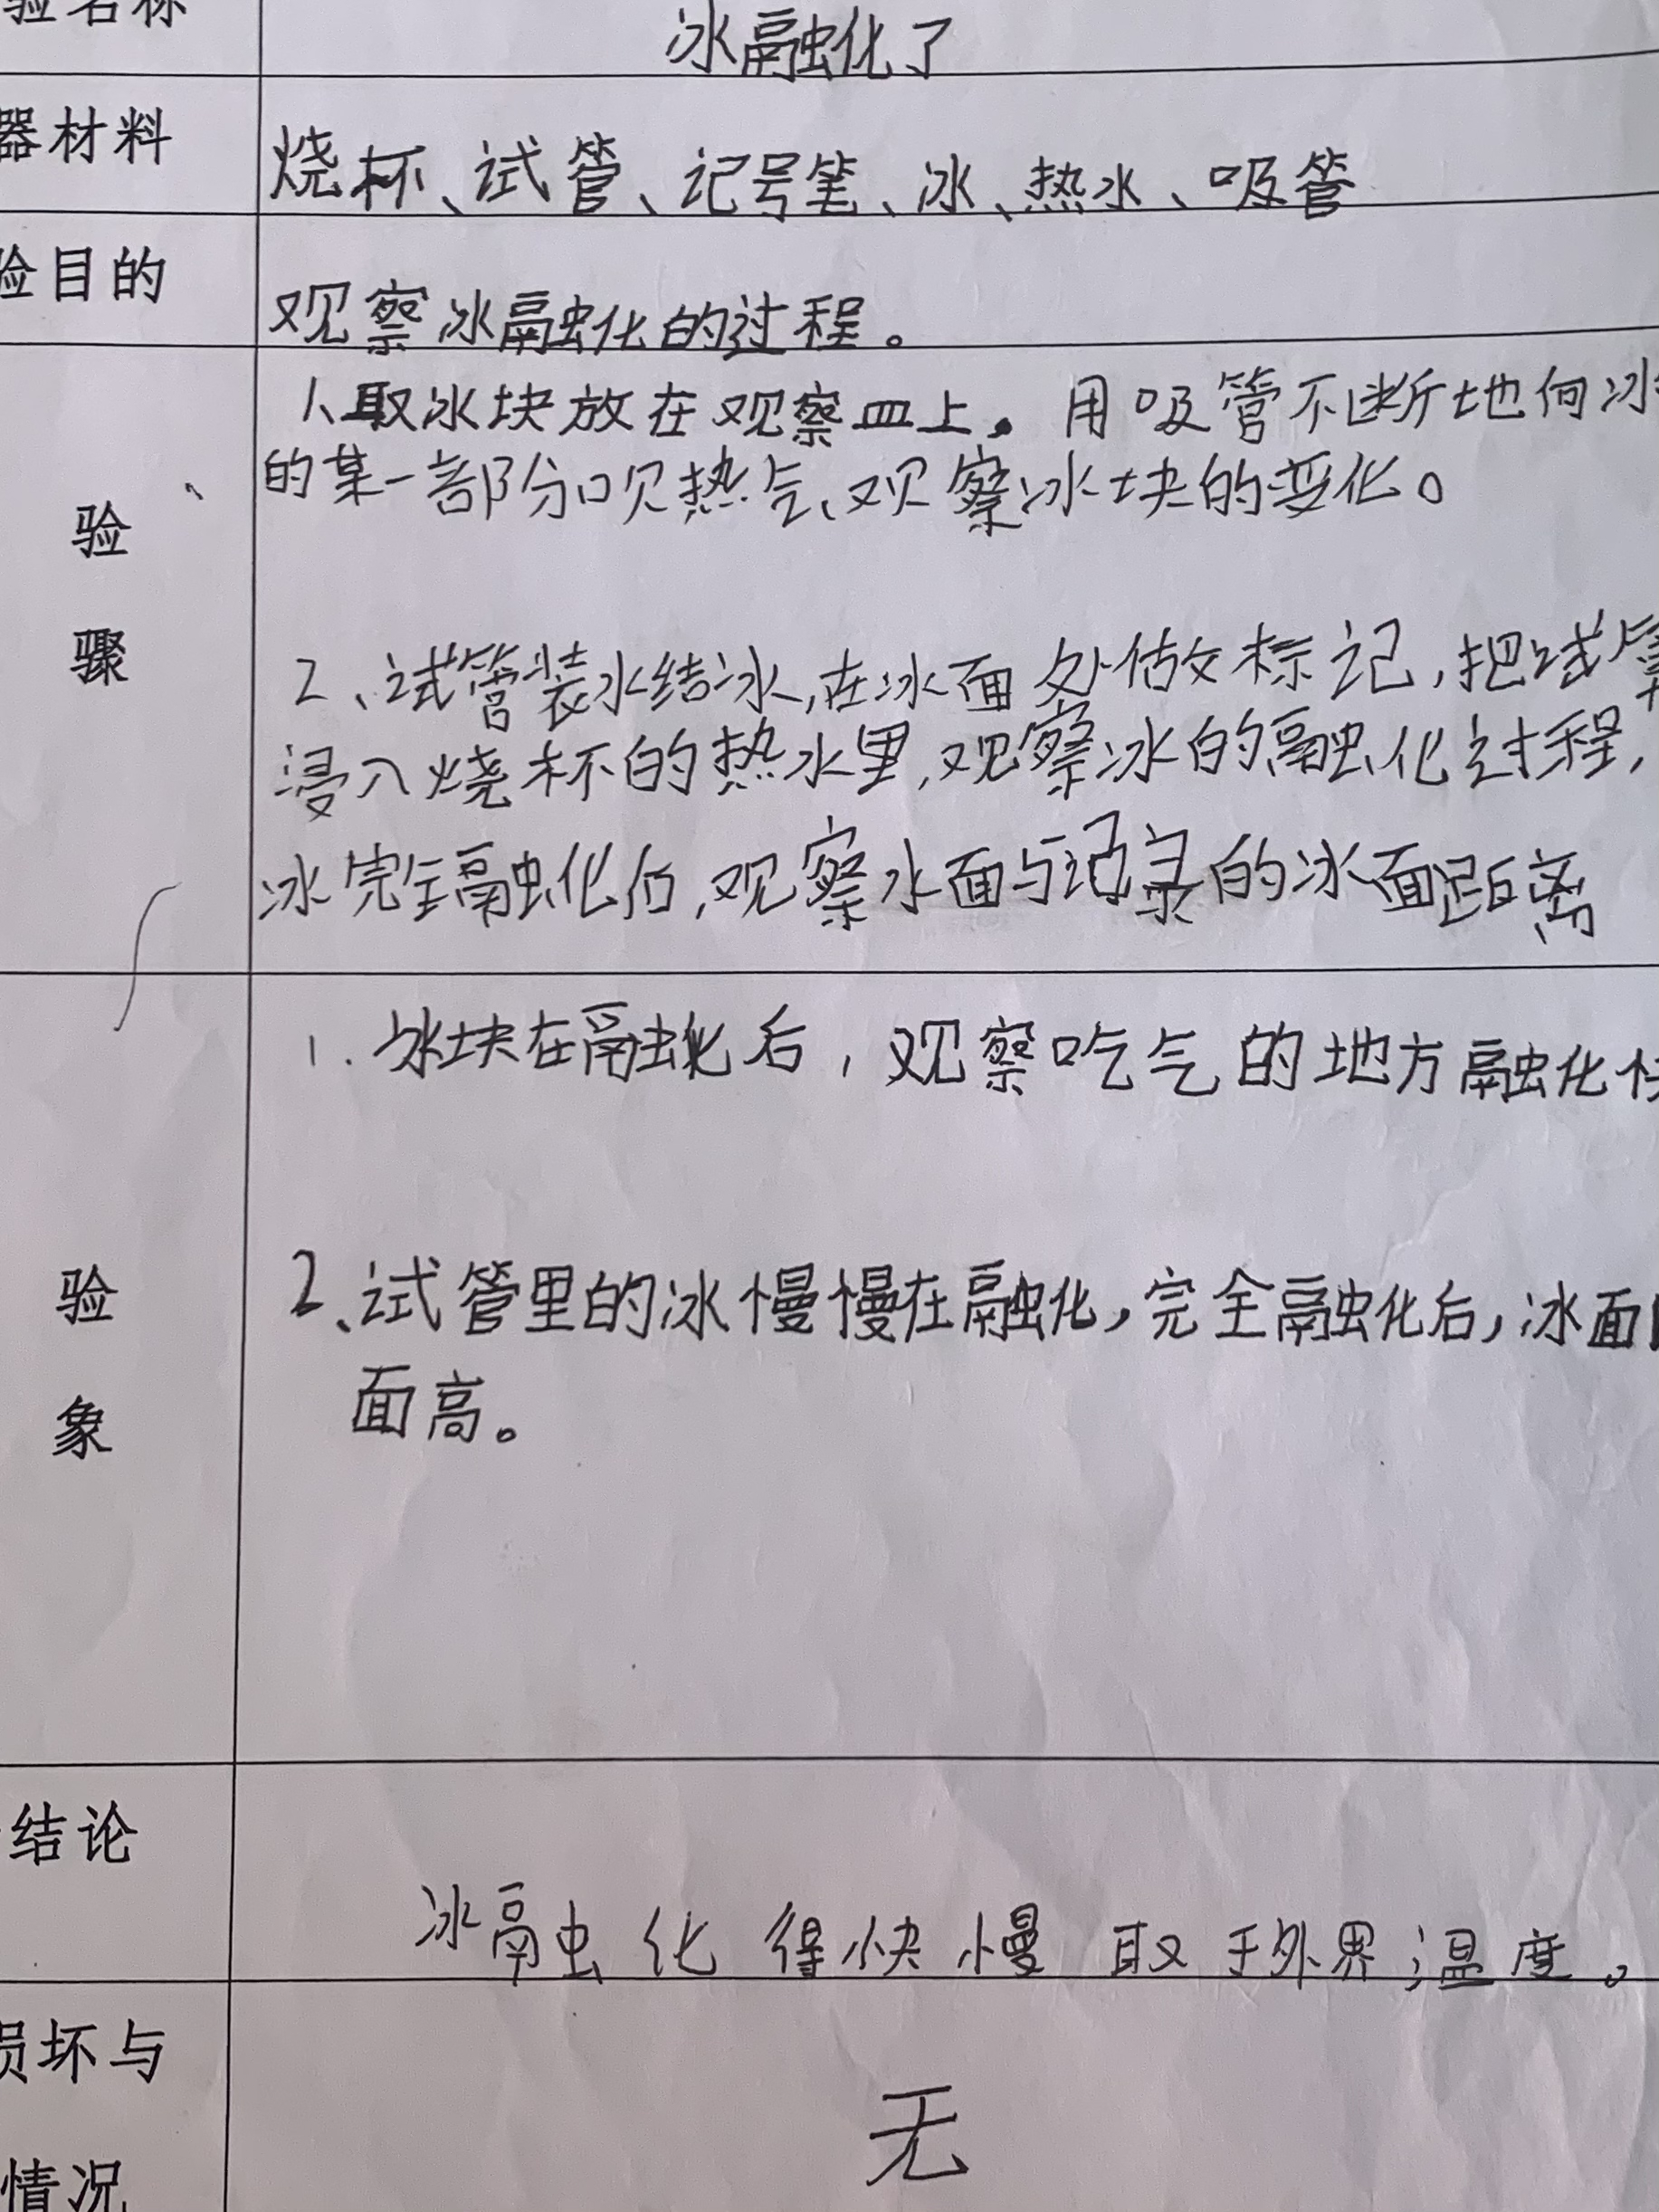 验名称
冰融化了
器材料
烧杯、试管、记号笔、冰、热水、吸管
验目的
观察冰融化的过程。
1、取冰块放在观察皿上。用吸管不断地向冰
的某一部分吹热气、观察冰块的变化。
验
骤
2、试管装水结冰,在冰面处做标记,把试管
浸入烧杯的热水里,观察冰的融化过程,
冰完全融化后,观察水面与记录的冰面距离
1.冰块在融化后,观察吃气的地方融化快
验
象
2、试管里的冰慢慢在融化,完全融化后,冰面
面高。
结论
冰融化得快慢取于外界温度。
损坏与
情况
无